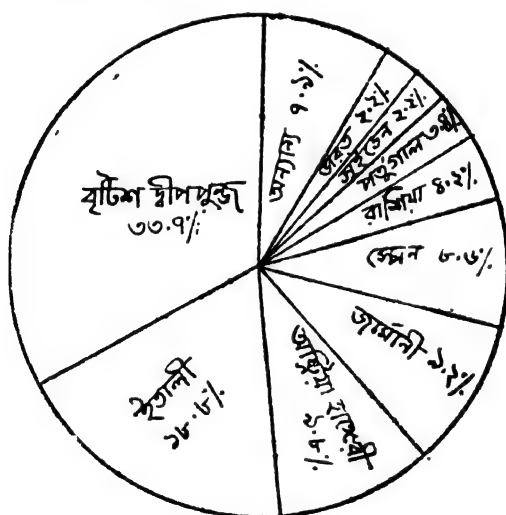 বৃটিশ দ্বীপপুন্জ
৩৩.৭%
অন্যান্য ৭.৯%
ভারত ২.২%
সুইডেন ২.২%
পর্তুগাল ৩.৪%
রাশিয়া ৪.২%
স্পেন ৮.৬%
জার্মানী ৯.২%
অষ্ট্রিয়া হাঙ্গেরী
৯.৮%
ইতালী
১৮.৮%